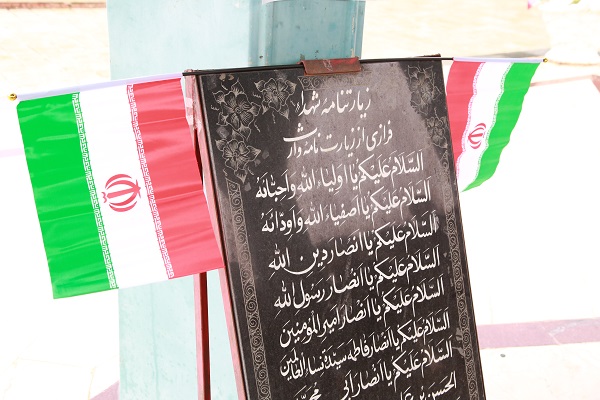 زیارتنامه شهداء
فرازی از زیارت نامه وارث
السَّلامُ عَلَیکُم یا اَولیاءَ اللهِ وَ اَحِبّائَهُ
السَّلامُ عَلَیکُم یا اَصفیاءَ اللهِ وَ اَوِدّائَهُ
السَّلامُ عَلَیکُم یا اَنصارَ دینِ اللهِ
السَّلامُ عَلَیکُم یا اَنصارَ رَسُولِ اللهِ
السَّلامُ عَلَیکُم یا اَنصارَ اَمیرِالمُؤمِنینَ
السَّلامُ عَلَیکُم یا اَنصارَ فاطِمَه سَیِّدَةِ نِساءِ العالَمینَ
السَّلامُ عَلَیکُم یا اَنصارَ اَبی مُحَمَّدٍ
الحَسَنِ بنِ